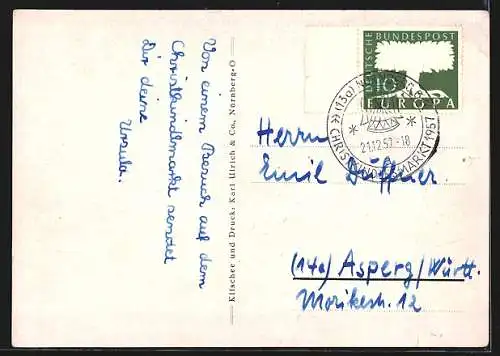 Von einem Besuch auf dem
Christkindlmarkt sendet
Dir deine
Ursula.
Klischee und Druck: Karl Ulrich & Co., Nürnberg-O
DEUTSCHE BUNDESPOST
10
EUROPA
(13a) NÜRNBERG
CHRISTKINDLESMARKT 1957
21.12.57.-18
Herrn
Emil Düffner
(14a) Asperg/Württ.
Morikestr. 12